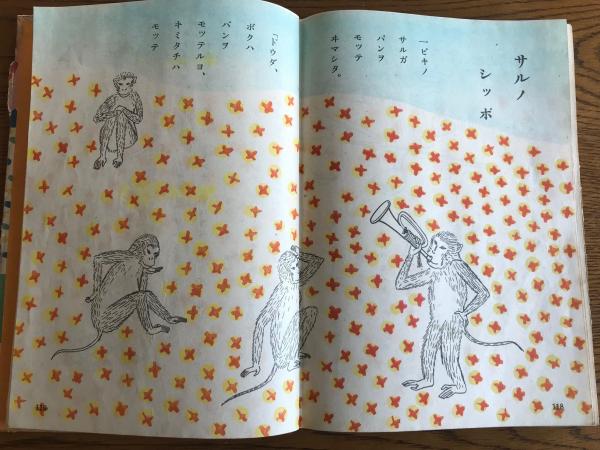 サルノ
シッポ
一ピキノ
サルガ
パンヲ
モッテ
ヰマシタ。
「ドウダ、
ボクハ
パンヲ
モッテルヨ、
キミタチハ
モッテ
118